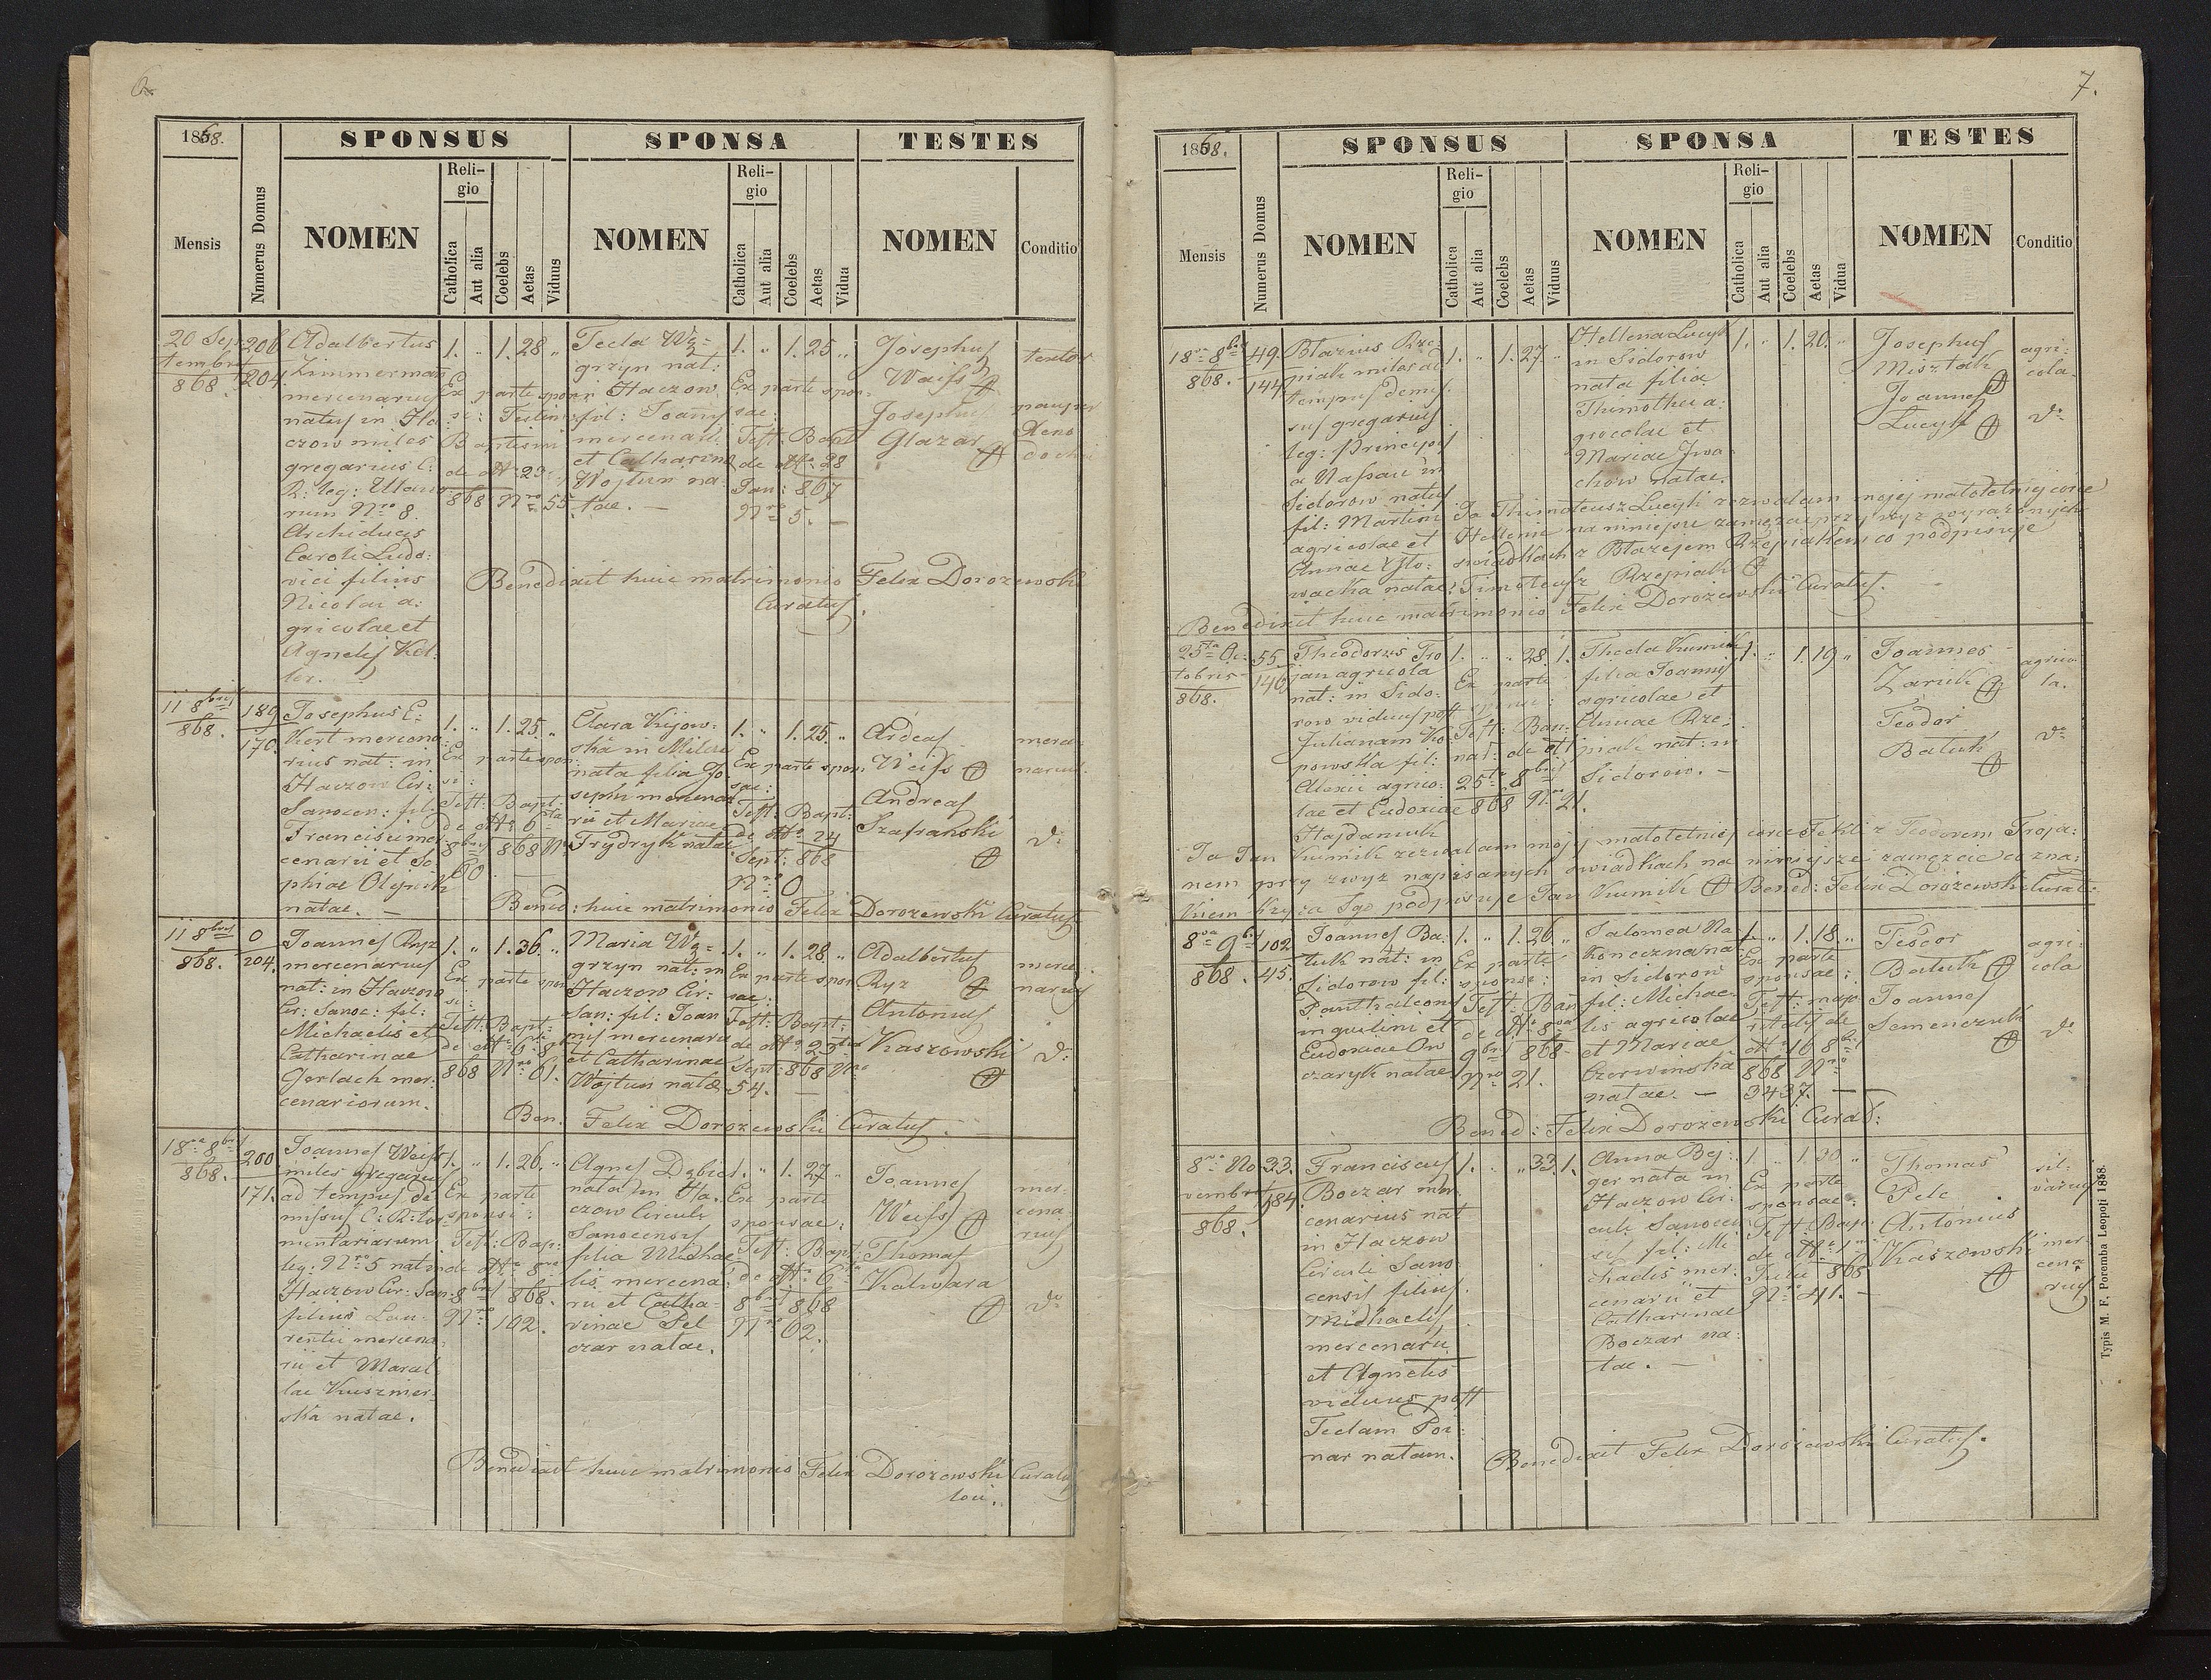 6.
1868.
SPONSUS
SPONSA
TESTES
Mensis
Nnmerus Domus
NOMEN
Reli-
gio
Catholica
Aut alia
Coelebs
Aetas
Viduus
NOMEN
Reli-
gio
Catholica
Aut alia
Coelebs
Aetas
Vidua
NOMEN
Conditio
20 Sep-
tembris
868.
206
204.
Adalbertus
Zimmerman
mercenarius
natus in Ha:
czow miles
gregarius C:
R: leg: Ulano:
rum Nro 8.
Archiducis
Caroli Ludo:
vici filius
Nicolai a:
gricolae et
Agnetis Kel:
ler.
1. „ 1. 28 „
Ex parte spon
si:
Baptismi
de dtto 23
868 Nro 55
Tecla Wę-
grzyn nat:
in Haczow
fil: Joannis
mercenarii
et Catharina
Wojtun na:
tae. —
1. „ 1. 25 „
Ex parte spon
sae:
Test: Bapt
de dtto 28
Jan: 867
Nro 5. —
Josephus
Weiss
Josephus
Glazar
textor
pauper
Benedixit huic matrimonio Felix Dorozewski
Curatus.
11 8bris
868.
189
170.
Josephus E:
kert mercena
rius nat: in
Haczow Cir:
Sanocen: fil:
Francisci mer
cenarii et So
phiae Olejnik
natae. —
1. „ 1. 25. „
Ex parte spon
si:
Test: Bapt:
de dtto 6ta
8bris 868 Nr
60. —
Clara Kijow:
ska in Milcza
nata filia Jo
sephi mercena
rii et Mariae
Frydryk natae
1. „ 1. 25. „
Ex parte spon
sae:
Test: Bapt:
de dtto 24
Sept: 868
Nro 0
Weiss
Andreas
Szafranski
merce:
narius.
do
Bened: huic matrimonio Felix Dorozewski Curatus
11 8bris
868.
0
204.
Joannes Ryz
mercenarius
nat: in Haczow
Cir: Sanoc: fil:
Michaelis et
Catharinae
Gerlach mer:
cenariorum.
1. „ 1. 36. „
Ex parte spon
si:
Test: Bapt:
de dtto 6 8bris
868 Nro 61.
Maria Wę-
grzyn nat: in
Haczow Cir:
San: fil: Joan
nis mercenarii
et Catharinae
Wojtun natae
1. „ 1. 28. „
Ex parte spon
sae:
Test: Bapt:
de dtto 23
Sept: 868 Nro
54. —
Adalbertus
Ryz
Antonius
Kaszowski
merce
narius
do
Ben: Felix Dorozewski Curatus.
18va 8bris
868.
200
171.
Joannes Weiss
miles gregarius
ad tempus di
missus C: R: tor
mentariarum
leg: Nro 5 nat in
Haczow Cir: San
filius Lau:
rentii mercena
rii et Maral
lae Kuszmer:
ska natae.
1. „ 1. 26. „
Ex parte
sponsi:
Test: Bap:
de dtto 8va
8bris 868.
Nro 102.
Agnes Dębic
nata in Ha:
czow Circuli
Sanocensis
filia Michae
lis mercena:
rii et Catha-
rinae Pel
czar natae.
1. „ 1. 27 „
Ex parte
sponsae:
Test: Bapt:
de dtto 6ta
8bris 868
Nro 62.
Joannes
Weiss
Thomas
Kalwara
mer:
cena
rius
do
Benedixit huic matrimonio Felix Dorozewski Curatus
loci.
7.
1868.
SPONSUS
SPONSA
TESTES
Mensis
Numerus Domus
NOMEN
Reli-
gio
Catholica
Aut alia
Coelebs
Aetas
Viduus
NOMEN
Reli-
gio
Catholica
Aut alia
Coelebs
Aetas
Vidua
NOMEN
Conditio
18va 8bris
868.
49.
144
Blazius Rze:
piak miles ad
tempus dimis
sus gregarius
leg: Principis
a Nassau in
Sidorow natus
fil: Martini
agricolae et
Annae Sło:
wacka natae.
1. „ 1. 27. „
Hellena Lucyk
in Sidorow
nata filia
Thimothei a:
gricolae et
Mariae Iwa
chow natae.
1. „ 1. 20. „
Josephus
Misztak
Joannes
Lucyk
agri:
cola.
do
Ja Thimoteusz Lucyk zezwalam mojej małoletniej corce
Hellenie na niniejsze zamęzcie przy wyz wyrazonych
swiadkach z Błazejem Rzepiakiem co podpisuje
Timoteusz Rzepiak
Benedixit huic matrimonio Felix Dorozewski Curatus.
25ta Oc:
tobris
868.
55
146
Theodorus Tro
jan agricola
nat: in Sido:
row viduus post
Julianam Ko:
powska fil:
Alexii agrico:
lae et Eudoxiae
Hajdamuk
1. „ „ 28. 1.
Ex parte
sponsi:
Test: Ban:
nat: de dtto
25ta 8bris
868 Nro 21.
Thecla Kumik
filia Joannis
agricolae et
Annae Rze:
piak nat: in
Sidorow. —
1. „ 1. 19. „
Joannes
Zarik
Teodor
Batuk
agrico
la.
do
Ja Jan Kumik zezwalam mojej małoletniej corce Tekli z Teodorem Troja:
nem przy zwyz napisanych swiadkach na niniejsze zamęzcie co zna:
kiem krzyza Sgo podpisuje Jan Kumik Bened: Felix Dorozewski Curat:
8va 9bris
868.
102
45.
Joannes Ba:
tuk nat: in
Sidorow fil:
Panthaleonis
inquilini et
Eudoxiae Ow
czaryk natae
1. „ 1. 26. „
Ex parte
sponsi:
Test: Ban
de dtto 8va
9bris 868
Nro 21.
Salomea Na
koneczna na
in Sidorow
fil: Michae
lis agricolae
et Mariae
Czerwinska
natae. —
1. „ 1. 18. „
Ex parte
sponsae:
Test:
de
dtto 16 8bris
868 Nro
3437. —
Teodor
Batuk
Joannes
Semenczuk
agri:
cola
do
Bened: Felix Dorozewski Curat:
8va No
vembris
868.
33.
184
Franciscus
Boczar mer
cenarius nat
in Haczow
Circuli Sano
censis filius
Michaelis
mercenarii
et Agnetis
viduus post
Teclam Poi
nar natam.
1. „ „ 33. 1.
Anna Bej:
ger nata in
Haczow Cir:
culi Sanocen
sis fil: Mi
chaelis mer:
cenarii et
Catharinae
Boczar na:
tae. —
1 „ 1. 30 „
Ex parte
sponsae:
Test: Bap:
de dtto 1ma
Julii 868
Nro 41. —
Thomas
Pelc
Antonius
Kaszowski
sil:
varius
mer:
cena
rius
Benedixit Felix Dorozewski Curatus.
Typis M. F. Poremba Leopoli 1858.